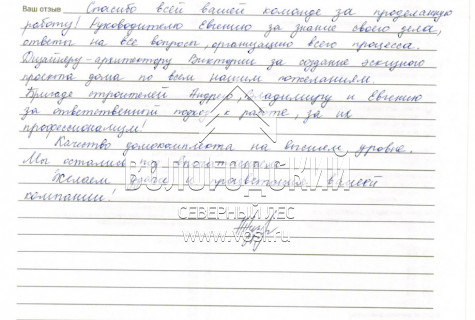 Ваш отзыв Спасибо всей вашей команде за проделанную
работу! Руководителю Евгению за знание своего дела,
ответы на все вопросы, организацию всего процесса.
Дизайнеру-архитектору Виктории за создание эскизного
проекта дома по всем нашим пожеланиям.
Бригаде строителей Андрею, Владимиру и Евгению
за ответственный подход к работе, за их
профессионализм!
Качество домокомплекта на высшем уровне.
Мы остались под впечатлением.
Желаем удачи и процветания вашей
компании!
ВОЛОГОДСКИЙ
СЕВЕРНЫЙ ЛЕС